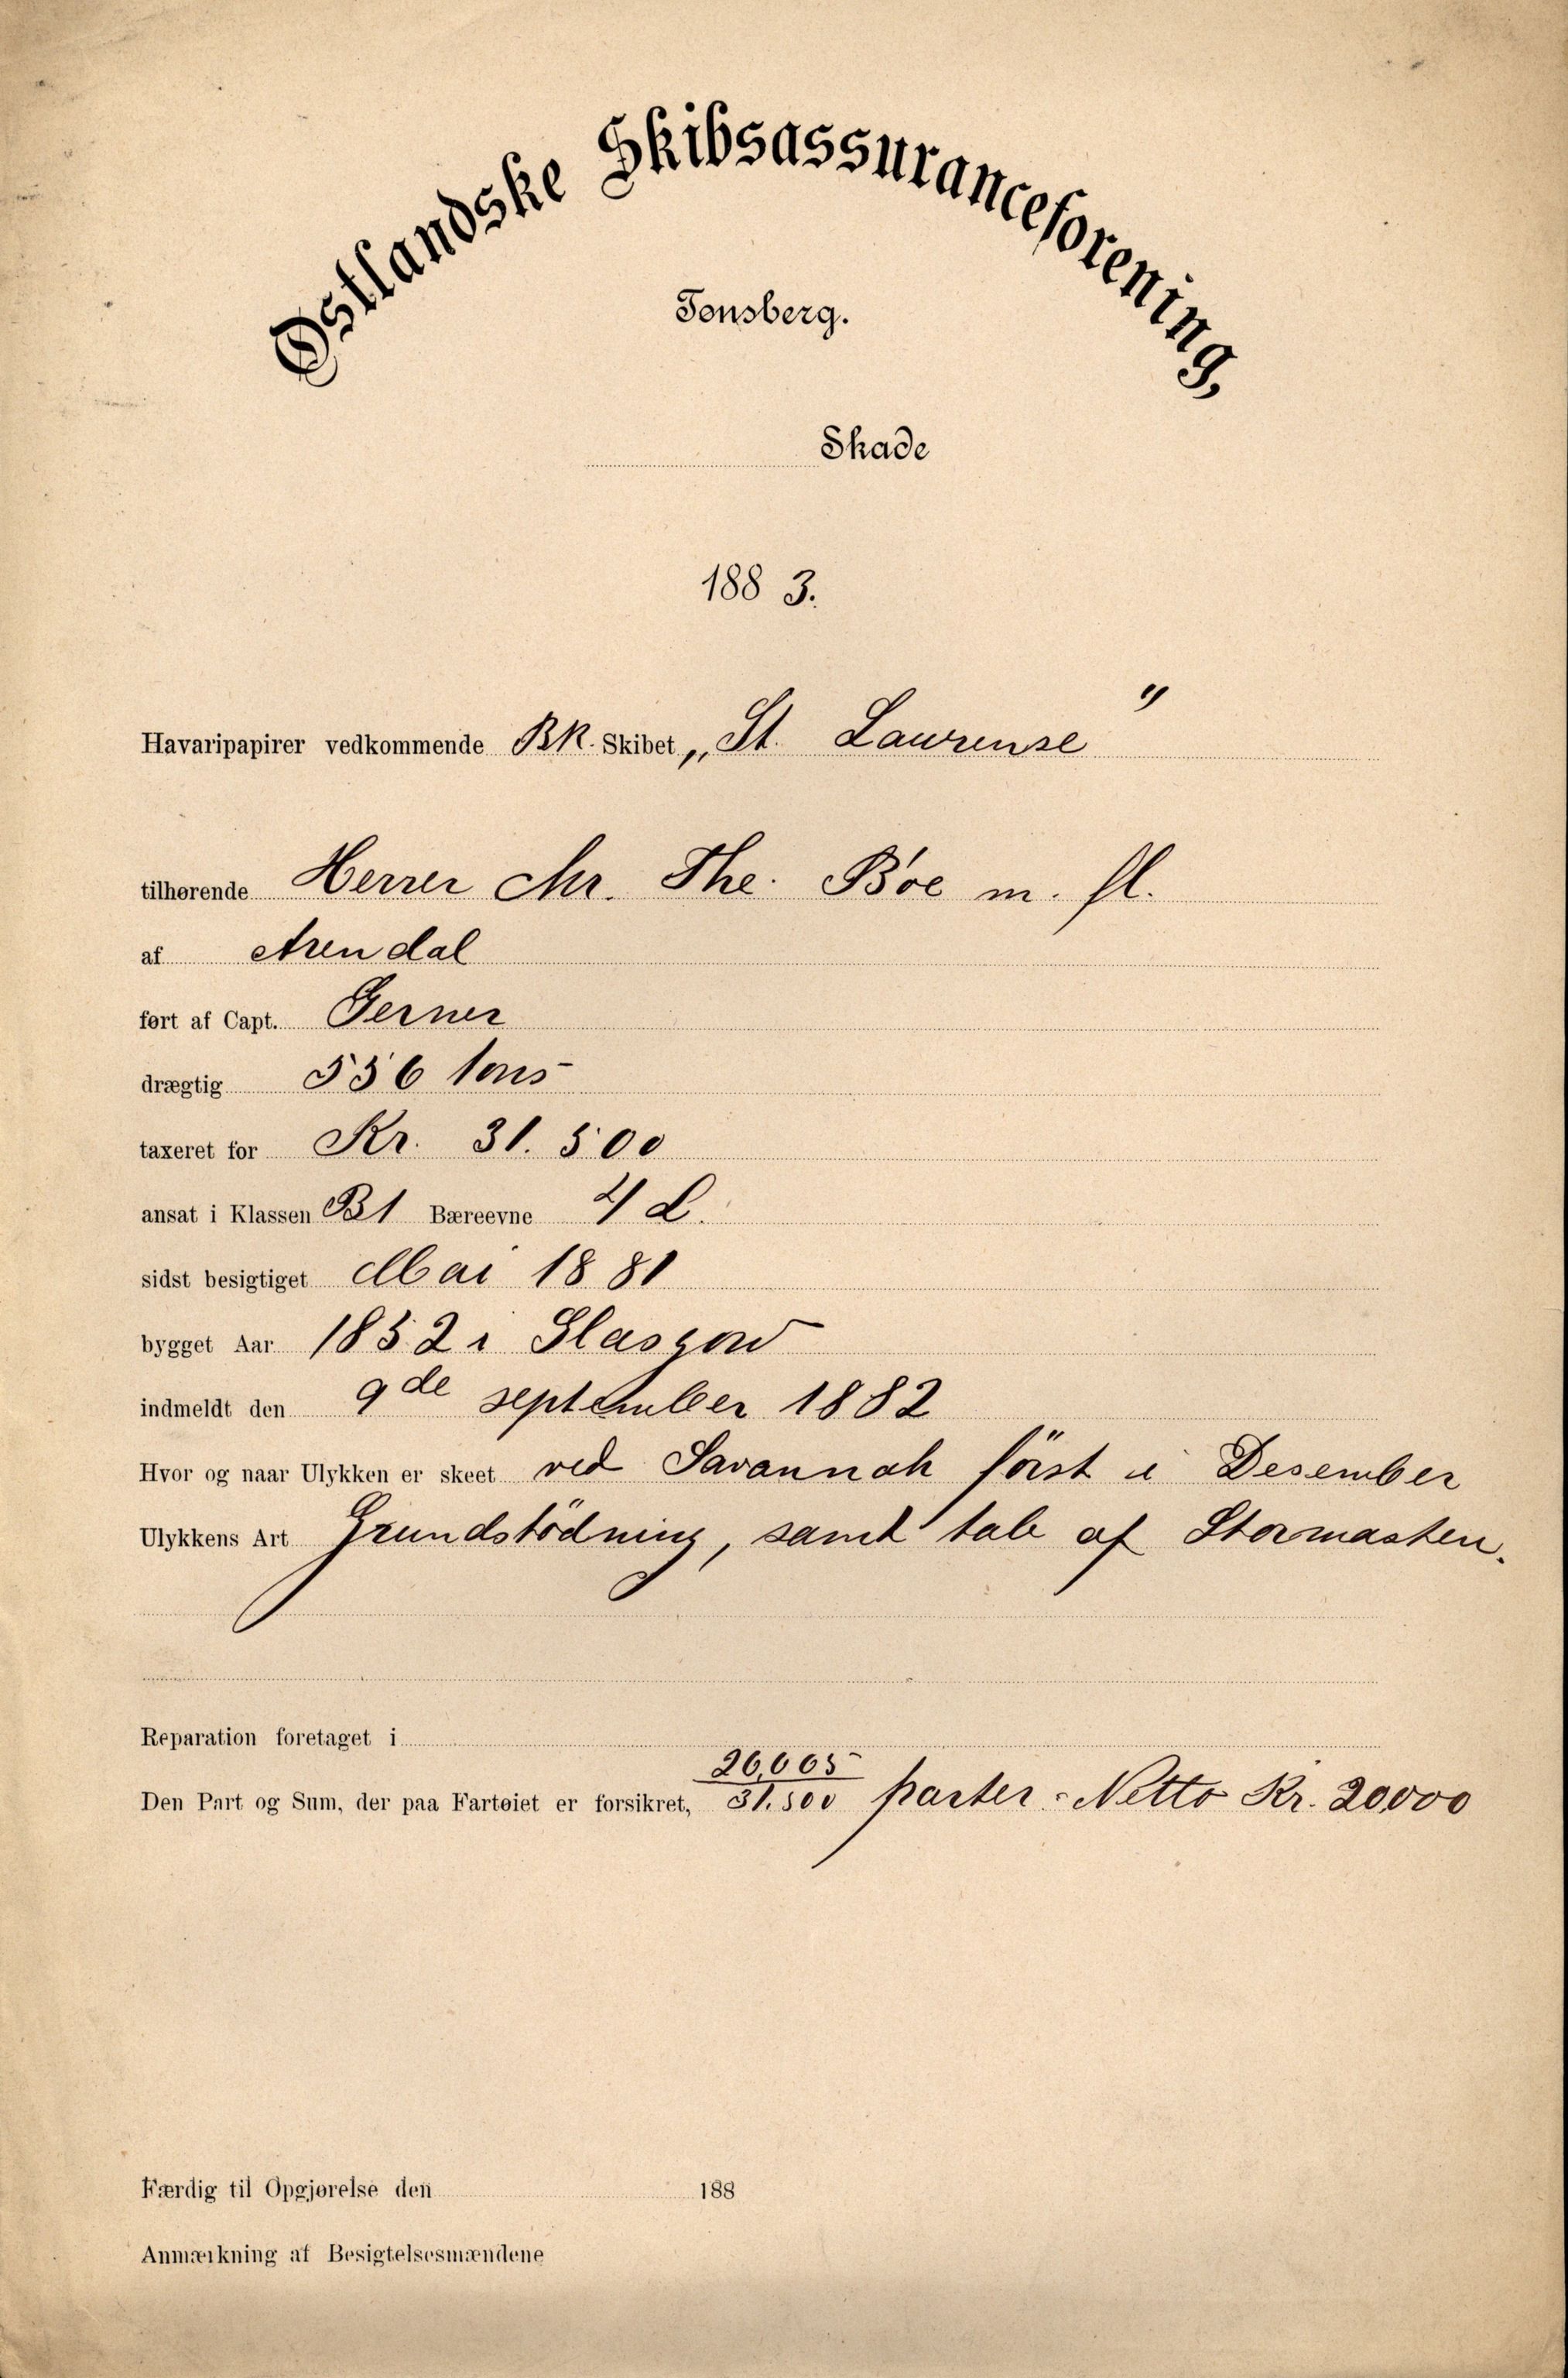 Østlandske Skibsassuranceforening,
Tønsberg.
Skade
1883.
Havaripapirer vedkommende Bk. Skibet „St. Lawrense"
tilhørende Herrer Chr. The. Böe m. fl.
af Arendal
ført af Capt. Gerner
drægtig 556 tons
taxeret for Kr. 31.500
ansat i Klassen B1 Bæreevne L.
sidst besigtiget Mai 1881
bygget Aar 1852 i Glasgow
indmeldt den 9de september 1882
Hvor og naar Ulykken er skeet ved Savannah först i Desember
Ulykkens Art Grundstödning, samt tab af Stormasten.
Reparation foretaget i
26,005
Den Part og Sum, der paa Fartøiet er forsikret, 31.500 parter = Netto Kr. 20,000
Færdig til Opgjørelse den 188
Anmærkning af Besigtelsesmændene